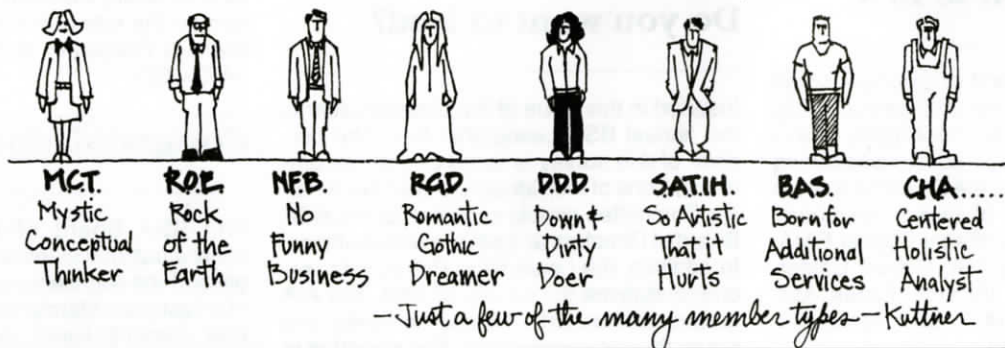 M.C.T.
Mystic
Conceptual
Thinker
R.O.E.
Rock
of the
Earth
N.F.B.
No
Funny
Business
R.G.D.
Romantic
Gothic
Dreamer
D.D.D
Down &
Dirty
Doer
S.A.T.I.H.
So Artistic
That it
Hurts
B.A.S.
Born for
Additional
Services
C.H.A....
Centered
Holistic
Analyst
—Just a few of the many member types—Kuttner